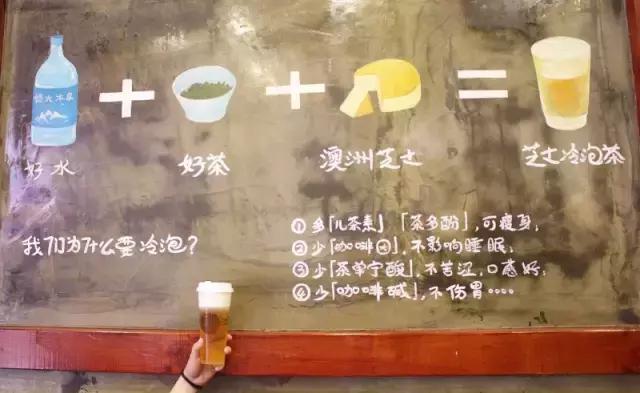 恒大冰泉
+ + =
好水 好茶 澳洲芝士 芝士冷泡茶
我们为什么要冷泡?
①多「儿茶素」「茶多酚」,可瘦身;
②少「咖啡因」,不影响睡眠;
③少「茶单宁酸」,不苦涩,口感好;
④少「咖啡碱」,不伤胃····